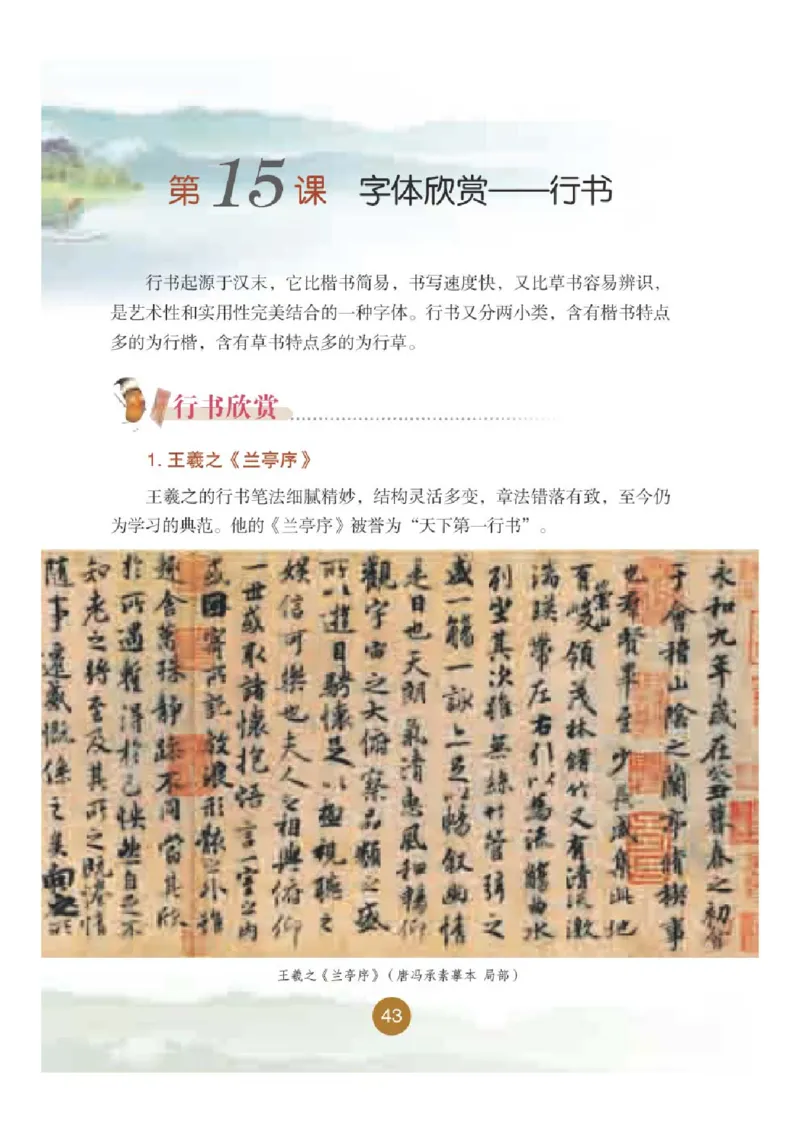 第15课 字体欣赏——行书
行书起源于汉末，它比楷书简易，书写速度快，又比草书容易辨识，
是艺术性和实用性完美结合的一种字体。行书又分两小类，含有楷书特点
多的为行楷，含有草书特点多的为行草。
行书欣赏
1. 王羲之《兰亭序》
王羲之的行书笔法细腻精妙，结构灵活多变，章法错落有致，至今仍
为学习的典范。他的《兰亭序》被誉为“天下第一行书”。
永和九年歲在癸丑暮春之初會
于會稽山陰之蘭亭脩稧事
也羣賢畢至少長咸集此地
有崇山峻領茂林脩竹又有清流激
湍暎帶左右引以為流觴曲水
列坐其次雖無絲竹管弦之
盛一觴一詠亦足以暢敘幽情
是日也天朗氣清惠風和暢仰
觀宇宙之大俯察品類之盛
所以遊目騁懷足以極視聽之
娛信可樂也夫人之相與俯仰
一世或取諸懷抱悟言一室之內
或因寄所託放浪形骸之外雖
趣舍萬殊靜躁不同當其欣
於所遇暫得於己快然自足不
知老之將至及其所之既惓情
隨事遷感慨係之矣向之所
王羲之《兰亭序》（唐冯承素摹本 局部）
43